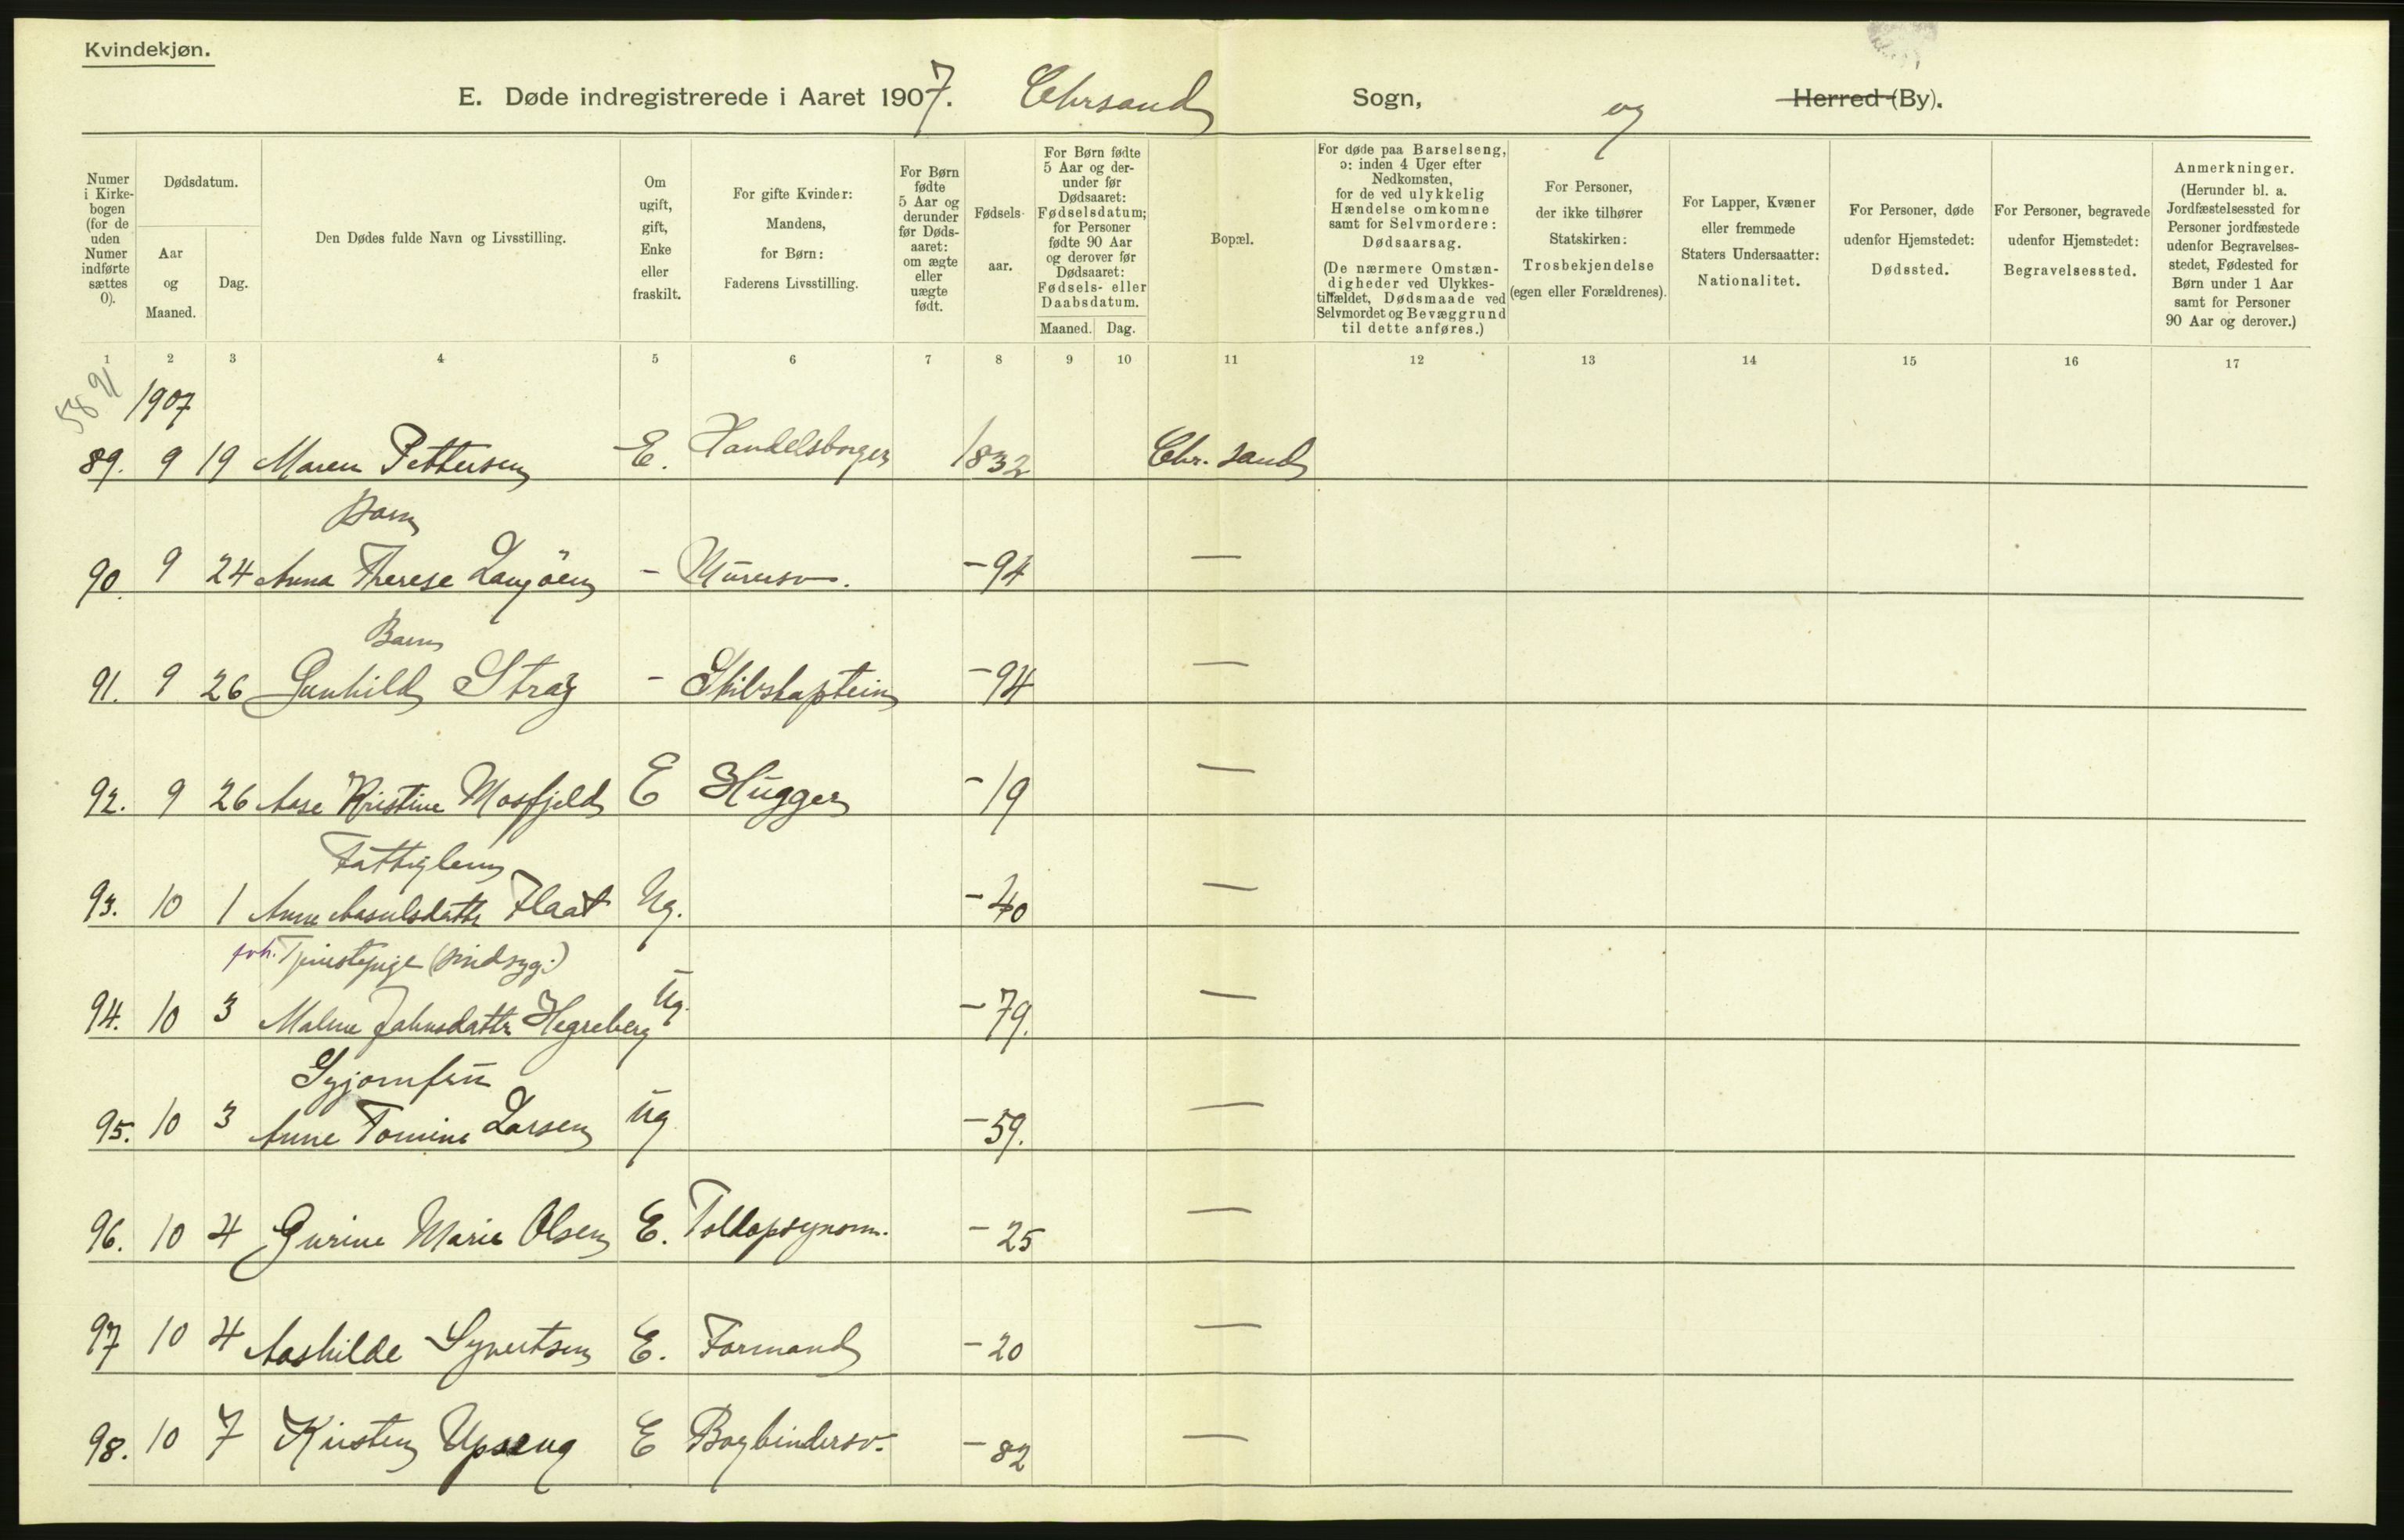 Kvindekjøn.
E. Døde indregistrerede i Aaret 1907. Chrsand Sogn, og Herred (By).
Numer i Kirkebogen (for de uden Numer indførte sættes 0).
Dødsdatum.
Aar og Maaned.
Dag.
Den Dødes fulde Navn og Livsstilling.
Om ugift, gift, Enke eller fraskilt.
For gifte Kvinder: Mandens, for Børn: Faderens Livsstilling.
For Børn fødte 5 Aar og derunder før Dødsaaret: om ægte eller uægte født.
Fødselsaar.
For Børn fødte 5 Aar og derunder før Dødsaaret: Fødselsdatum; for Personer fødte 90 Aar og derover før Dødsaaret: Fødsels- eller Daabsdatum.
Maaned. Dag.
Bopæl.
For døde paa Barselseng, ɔ: inden 4 Uger efter Nedkomsten, for de ved ulykkelig Hændelse omkomne samt for Selvmordere: Dødsaarsag.
(De nærmere Omstændigheder ved Ulykkestilfældet, Dødsmaade ved Selvmordet og Bevæggrund til dette anføres.)
For Personer, der ikke tilhører Statskirken: Trosbekjendelse (egen eller Forældrenes).
For Lapper, Kvæner eller fremmede Staters Undersaatter: Nationalitet.
For Personer, døde udenfor Hjemstedet: Dødssted.
For Personer, begravede udenfor Hjemstedet: Begravelsessted.
Anmerkninger.
(Herunder bl. a. Jordfæstelsessted for Personer jordfæstede udenfor Begravelsesstedet, Fødested for Børn under 1 Aar samt for Personer 90 Aar og derover.)
1 2 3 4 5 6 7 8 9 10 11 12 13 14 15 16 17
58 91
1907
89. 9 19 Maren Pettersen E. Handelsborger 1832 Chr.sand
Barn
90. 9 24 Anna Therese Langöen - Murersv. - 94 —
Barn
91. 9 26 Gunhild Stray - Skibskaptein - 94 —
92. 9 26 Aase Kristine Mosfjeld E Hugger - 19 —
Fattiglem
93. 10 1 Anne Aasulsdattr Flaat Ug. - 40 —
forh. Tjenestepige (sindsyg.)
94. 10 3 Malene Johnsdattr Hegreberg Ug. - 79. —
Syjomfru
95. 10 3 Anne Tomine Larsen Ug - 59. —
96. 10 4 Gurine Marie Olsen E. Toldopsynsm. - 25 —
97 10 4 Aashilde Syvertsen E. Formand - 20 —
98. 10 7 Kirsten Upseng E Bogbindersv. - 82 —